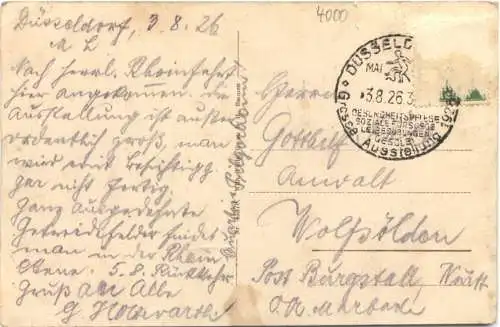 Düsseldorf, 3.8.26
M L
Nach herrl. Rheinfahrt
hier angekommen. Die
Ausstellung ist außer
ordentlich groß, man
wird mit Besichtigg
gar nicht fertig.
Ganz ausgedehnte
Getreidefelder findet
man in der Rhein
Ebene. 5.8. Rückkehr
Gruß an Alle
4000
DÜSSELD
MAI
3.8.26.3
GESUNDHEITSPFLEGE
SOZIALE FÜRSORGE
LEIBESÜBUNGEN
GESOLEI
Grosse Ausstellung 1926
Herrn
Gotthilf
Anwalt
Wolfsölden
Post Burgstall, Württ
O.A. Marbach